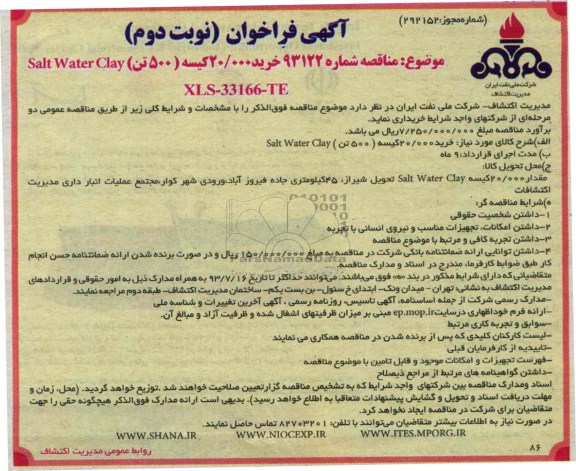 (شماره مجوز: ۲۹۲۱۵۲)
آگهی فراخوان (نوبت دوم)
شرکت ملی نفت ایران
مدیریت اکتشاف
موضوع: مناقصه شماره ۹۳۱۲۲ خرید ۲۰/۰۰۰کیسه ( ۵۰۰ تن) Salt Water Clay
XLS-33166-TE
مدیریت اکتشاف- شرکت ملی نفت ایران در نظر دارد موضوع مناقصه فوق‌الذکر را با مشخصات و شرایط کلی زیر از طریق مناقصه عمومی دو
مرحله‌ای از شرکتهای واجد شرایط خریداری نماید.
برآورد مناقصه مبلغ ۷/۲۵۰/۰۰۰/۰۰۰ریال می باشد.
الف)شرح کالای مورد نیاز: خرید۲۰/۰۰۰کیسه ( ۵۰۰ تن ) Salt Water Clay
ب) مدت اجرای قرارداد: ۹ ماه
ج)محل تحویل کالا:
مقدار۲۰/۰۰۰کیسه Salt Water Clay تحویل شیراز، ۴۵کیلومتری جاده فیروز آباد،ورودی شهر کوار،مجتمع عملیات انبار داری مدیریت
اکتشافات
ه)شرایط مناقصه گر:
۱-داشتن شخصیت حقوقی
۲-داشتن امکانات، تجهیزات مناسب و نیروی انسانی با تجربه
۳-داشتن تجربه کافی و مرتبط با موضوع مناقصه
۴-داشتن توانایی ارائه ضمانتنامه بانکی شرکت در مناقصه به مبلغ ۱۵۰/۰۰۰/۰۰۰ ریال و در صورت برنده شدن ارائه ضمانتنامه حسن انجام
کار طبق ضوابط کارفرما، مندرج در اسناد و مدارک مناقصه.
متقاضیانی که دارای شرایط مذکور در بند «ه» فوق می‌باشند. می‌توانند حداکثر تا تاریخ ۹۳/۷/۱۶ به همراه مدارک ذیل به امور حقوقی و قراردادهای
مدیریت اکتشاف به نشانی: تهران - میدان ونک- ابتدای خ سئول- بن بست یکم- ساختمان مدیریت اکتشاف- طبقه دوم مراجعه نمایند.
-مدارک رسمی شرکت از جمله اساسنامه، آگهی تاسیس، روزنامه رسمی ، آگهی آخرین تغییرات و شناسه ملی
-ارائه فرم خوداظهاری درسایت ep.mop.ir مبنی بر میزان ظرفیتهای اشغال شده و ظرفیت آزاد و مبالغ آن.
-سوابق و تجربه کاری مرتبط
-لیست کارکنان کلیدی که پس از برنده شدن در مناقصه همکاری می نمایند
-تاییدیه از کارفرمایان قبلی
-فهرست تجهیزات و امکانات موجود و قابل تامین با موضوع مناقصه
-داشتن گواهینامه های مرتبط از مراجع ذیصلاح
اسناد ومدارک مناقصه بین شرکتهای واجد شرایط که به تشخیص مناقصه گزارتعیین صلاحیت خواهند شد .توزیع خواهد گردید. (محل، زمان و
مهلت دریافت اسناد و تحویل و گشایش پیشنهادات متعاقبا به اطلاع خواهد رسید). بدیهی است ارائه مدارک فوق‌الذکر هیچگونه حقی را جهت
متقاضیان برای شرکت در مناقصه ایجاد نخواهد کرد.
در صورت نیاز به اطلاعات بیشتر متقاضیان می‌توانند با تلفن: ۸۲۷۰۳۲۰۱ تماس حاصل نمایند.
WWW.SHANA.IR WWW.NIOCEXP.IR WWW.ITES.MPORG.IR
روابط عمومی مدیریت اکتشاف
۸۶